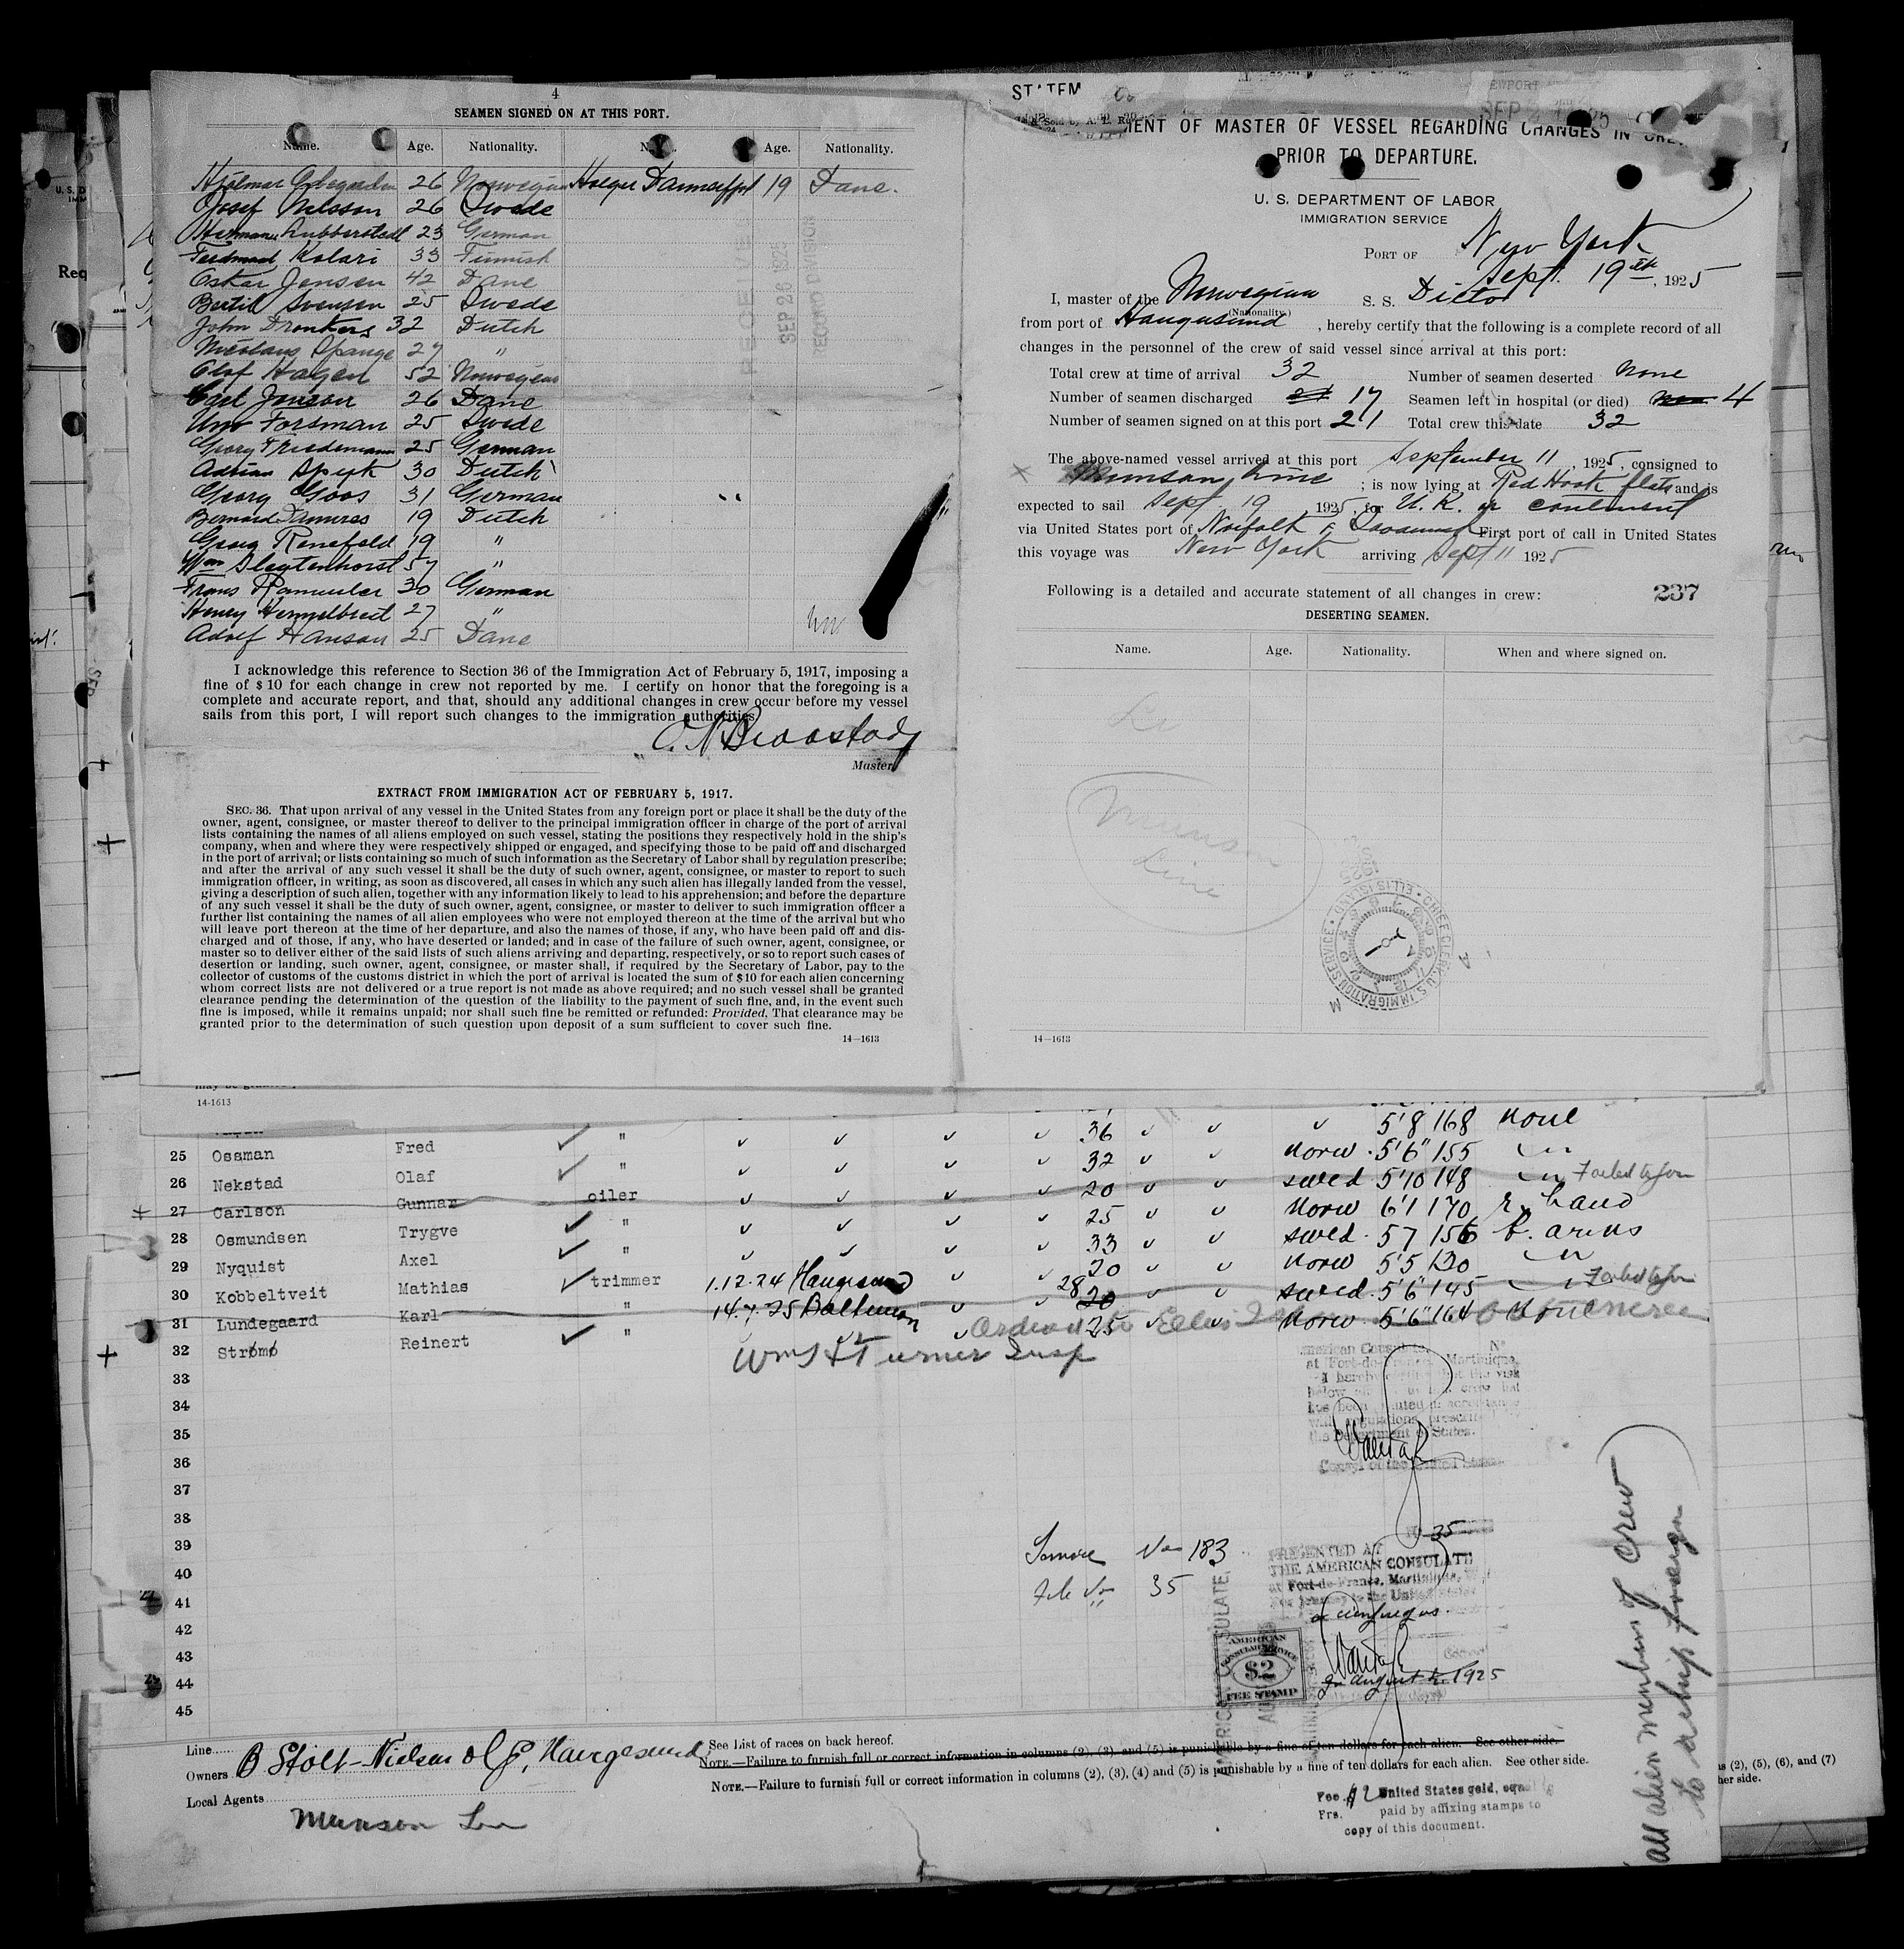 4
SEAMEN SIGNED ON AT THIS PORT.
Name. Age. Nationality. Age. Nationality.
Hjalmar 26 Norwegian Holger 19 Dane.
Josef Nelsson 26 Swede
Herman Lubberstedt 23 German
Ferdinand Kolari 33 Finnish
Oskar Jensen 42 Dane
Bertil Svensen 25 Swede
John Dronkers 32 Dutch
Nicolaus Spange 27 "
Olaf Hagen 52 Norwegian
Carl Jenson 26 Dane
Uno Forsman 25 Swede
Georg Friedemann 25 German
Adrian Spyk 30 Dutch
Georg Goos 31 German
Bernard 19 Dutch
Georg Renefeld 19 "
Wm Sleytenhorst 57 "
Frans 30 German
Henry Hempelbreit 27 "
Adolf Hanson 25 Dane
RECEIVED
SEP 26 1925
RECORD DIVISION
I acknowledge this reference to Section 36 of the Immigration Act of February 5, 1917, imposing a
fine of $10 for each change in crew not reported by me. I certify on honor that the foregoing is a
complete and accurate report, and that, should any additional changes in crew occur before my vessel
sails from this port, I will report such changes to the immigration authorities.
Master.
EXTRACT FROM IMMIGRATION ACT OF FEBRUARY 5, 1917.
SEC. 36. That upon arrival of any vessel in the United States from any foreign port or place it shall be the duty of the
owner, agent, consignee, or master thereof to deliver to the principal immigration officer in charge of the port of arrival
lists containing the names of all aliens employed on such vessel, stating the positions they respectively hold in the ship's
company, when and where they were respectively shipped or engaged, and specifying those to be paid off and discharged
in the port of arrival; or lists containing so much of such information as the Secretary of Labor shall by regulation prescribe;
and after the arrival of any such vessel it shall be the duty of such owner, agent, consignee, or master to report to such
immigration officer, in writing, as soon as discovered, all cases in which any such alien has illegally landed from the vessel,
giving a description of such alien, together with any information likely to lead to his apprehension; and before the departure
of any such vessel it shall be the duty of such owner, agent, consignee, or master to deliver to such immigration officer a
further list containing the names of all alien employees who were not employed thereon at the time of the arrival but who
will leave port thereon at the time of her departure, and also the names of those, if any, who have been paid off and dis-
charged and of those, if any, who have deserted or landed; and in case of the failure of such owner, agent, consignee, or
master so to deliver either of the said lists of such aliens arriving and departing, respectively, or so to report such cases of
desertion or landing, such owner, agent, consignee, or master shall, if required by the Secretary of Labor, pay to the
collector of customs of the customs district in which the port of arrival is located the sum of $10 for each alien concerning
whom correct lists are not delivered or a true report is not made as above required; and no such vessel shall be granted
clearance pending the determination of the question of the liability to the payment of such fine, and, in the event such
fine is imposed, while it remains unpaid; nor shall such fine be remitted or refunded: Provided, That clearance may be
granted prior to the determination of such question upon deposit of a sum sufficient to cover such fine.
14—1613
OF MASTER OF VESSEL REGARDING CHANGES IN
PRIOR TO DEPARTURE.
U. S. DEPARTMENT OF LABOR
IMMIGRATION SERVICE
PORT OF New York
Sept. 19th, 1925
I, master of the Norwegian S. S. Dicto
(Nationality.)
from port of Haugesund, hereby certify that the following is a complete record of all
changes in the personnel of the crew of said vessel since arrival at this port:
Total crew at time of arrival 32 Number of seamen deserted none
Number of seamen discharged 17 Seamen left in hospital (or died) 4
Number of seamen signed on at this port 21 Total crew this date 32
The above-named vessel arrived at this port September 11, 1925, consigned to
Munson Line; is now lying at Red Hook flats and is
expected to sail Sept 19, 1925, for U. K. or continent
via United States port of Norfolk & Savannah First port of call in United States
this voyage was New York arriving Sept 11 1925
Following is a detailed and accurate statement of all changes in crew: 237
DESERTING SEAMEN.
Name. Age. Nationality. When and where signed on.
Munson
Line
CHIEF CLERK, U.S. IMMIGRATION SERVICE • ELLIS ISLAND
14—1613
14-1613
36 5'8 168 none
25 Ossman Fred " 32 Norw. 5'6" 155
26 Nekstad Olaf " 20 swed 5'10 148
27 Carlson Gunnar oiler 25 Norw 6'1 170 r. hand
28 Osmundsen Trygve " 33 swed. 5 7 156 b. arms
29 Nyquist Axel " 20 Norw 5'5 130
30 Kobbeltveit Mathias trimmer 1.12.24 Haugesund 28 20 swed. 5'6" 145
31 Lundegaard Karl " 14.7.25 Baltimore 25 Norw 5'6" 164 none
32 Strømø Reinert "
33
34
35
36
37
38
39
40
41
42
43
44
45
Service No 183
File No 35
PRESENTED AT
THE AMERICAN CONSULATE
at Fort-de-France, Martinique,
AMERICAN
CONSULAR SERVICE
$2
FEE STAMP
August 1925
Line
Owners B Stolt-Nielsen Haugesund
Local Agents
Munson Line
See List of races on back hereof.
NOTE.—Failure to furnish full or correct information in columns (2), (3), and (5) is punishable by a fine of ten dollars for each alien. See other side.
NOTE.—Failure to furnish full or correct information in columns (2), (3), (4) and (5) is punishable by a fine of ten dollars for each alien. See other side.
Fee $2 United States gold, equal
Frs. paid by affixing stamps to
copy of this document.
All alien members of crew
to reship foreign
(2), (5), (6), and (7)
her side.